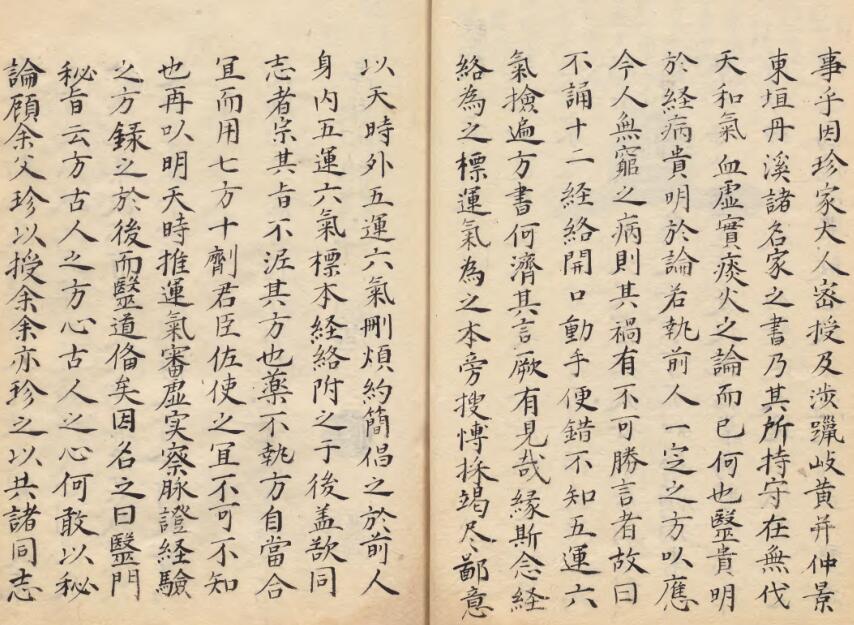 事乎因珍家大人密授及涉躐岐黄并仲景
東垣丹溪諸名家之書乃其所持守在無伐
天和氣血虛實痰火之論而已何也醫貴明
於経病貴明於論若執前人一定之方以應
今人無窮之病則其禍有不可勝言者故曰
不誦十二経絡開口動手便錯不知五運六
氣撿遍方書何濟其言厥有見哉緣斯念経
絡為之標運氣為之本旁搜愽採竭尽鄙意
以天時外五運六氣刪煩約簡倡之於前人
身内五運六氣標本経絡附之于後盖欲同
志者宗其旨不泥其方也藥不執方自當合
宜而用七方十劑君臣佐使之宜不可不知
也再以明天時推運氣審虛实察脉證経驗
之方録之於後而醫道俻矣因名之曰醫門
秘旨云方古人之方心古人之心何敢以秘
論顧余父珍以授余余亦珍之以共諸同志